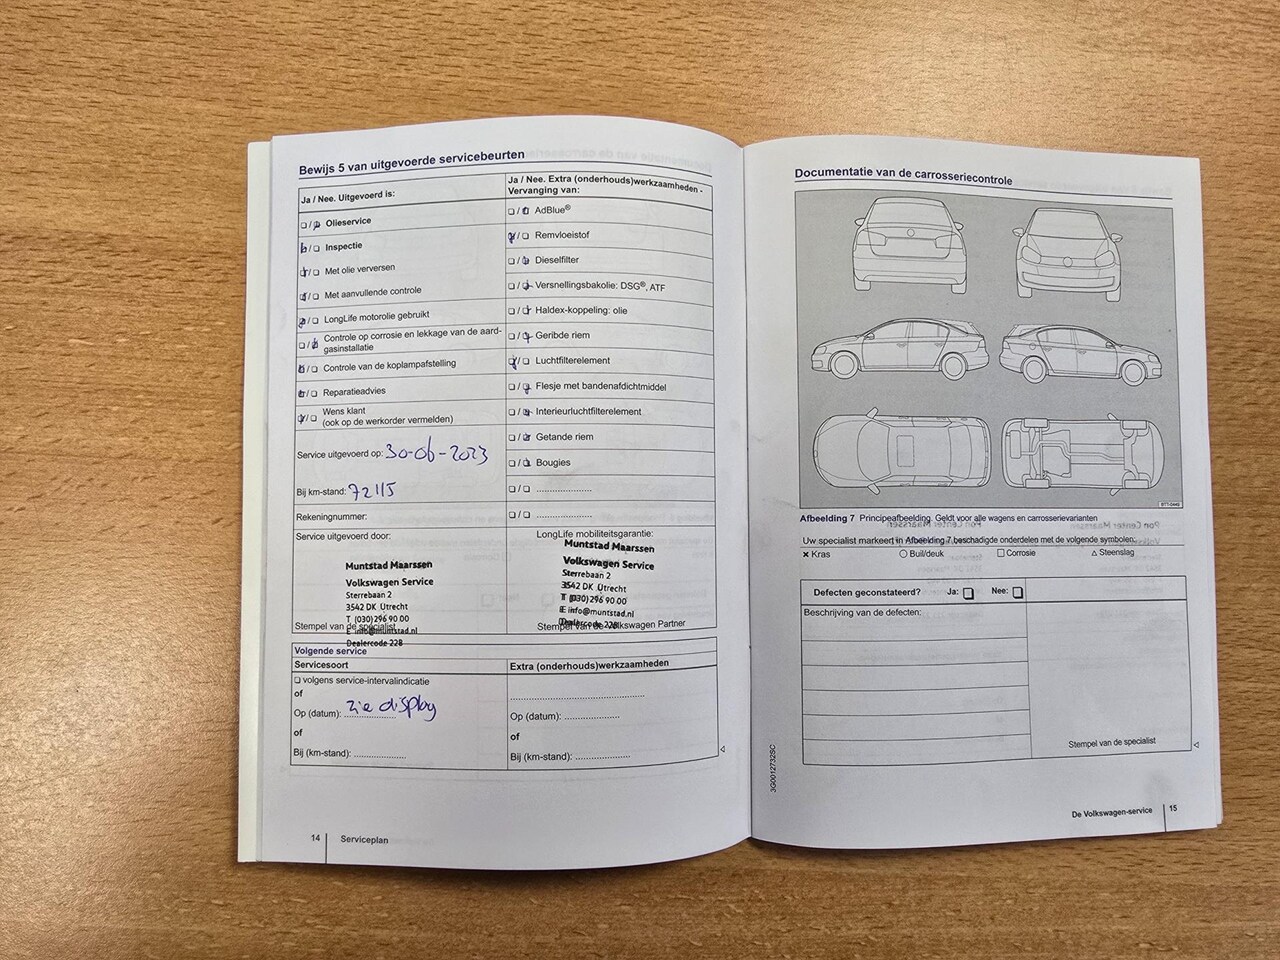 Bewijs 5 van uitgevoerde servicebeurten
Ja / Nee. Uitgevoerd is:
Olieservice
Inspectie
Met olie verversen
Met aanvullende controle
LongLife motorolie gebruikt
Controle op corrosie en lekkage van de aard-
gasinstallatie
Controle van de koplampafstelling
Reparatieadvies
Wens klant
(ook op de werkorder vermelden)
Service uitgevoerd op: 30-06-2023
Bij km-stand: 72115
Rekeningnummer:
Service uitgevoerd door:
Muntstad Maarssen
Volkswagen Service
Sterrebaan 2
3542 DK Utrecht
T (030) 296 90 00
E info@muntstad.nl
Stempel van de specialist
Dealercode 228
Ja / Nee. Extra (onderhouds)werkzaamheden -
Vervanging van:
AdBlue®
Remvloeistof
Dieselfilter
Versnellingsbakolie: DSG®, ATF
Haldex-koppeling: olie
Geribde riem
Luchtfilterelement
Flesje met bandenafdichtmiddel
Interieurluchtfilterelement
Getande riem
Bougies
LongLife mobiliteitsgarantie:
Muntstad Maarssen
Volkswagen Service
Sterrebaan 2
3542 DK Utrecht
T (030) 296 90 00
E info@muntstad.nl
Dealercode 228
Stempel van de Volkswagen Partner
Volgende service
Servicesoort
volgens service-intervalindicatie
of
Op (datum): zie display
of
Bij (km-stand):
Extra (onderhouds)werkzaamheden
Op (datum):
of
Bij (km-stand):
14 Serviceplan
Documentatie van de carrosseriecontrole
Afbeelding 7 Principeafbeelding. Geldt voor alle wagens en carrosserievarianten
Uw specialist markeert in Afbeelding 7 beschadigde onderdelen met de volgende symbolen:
× Kras ○ Buil/deuk □ Corrosie △ Steenslag
Defecten geconstateerd? Ja: Nee:
Beschrijving van de defecten:
Stempel van de specialist
3G0012732SC
De Volkswagen-service 15